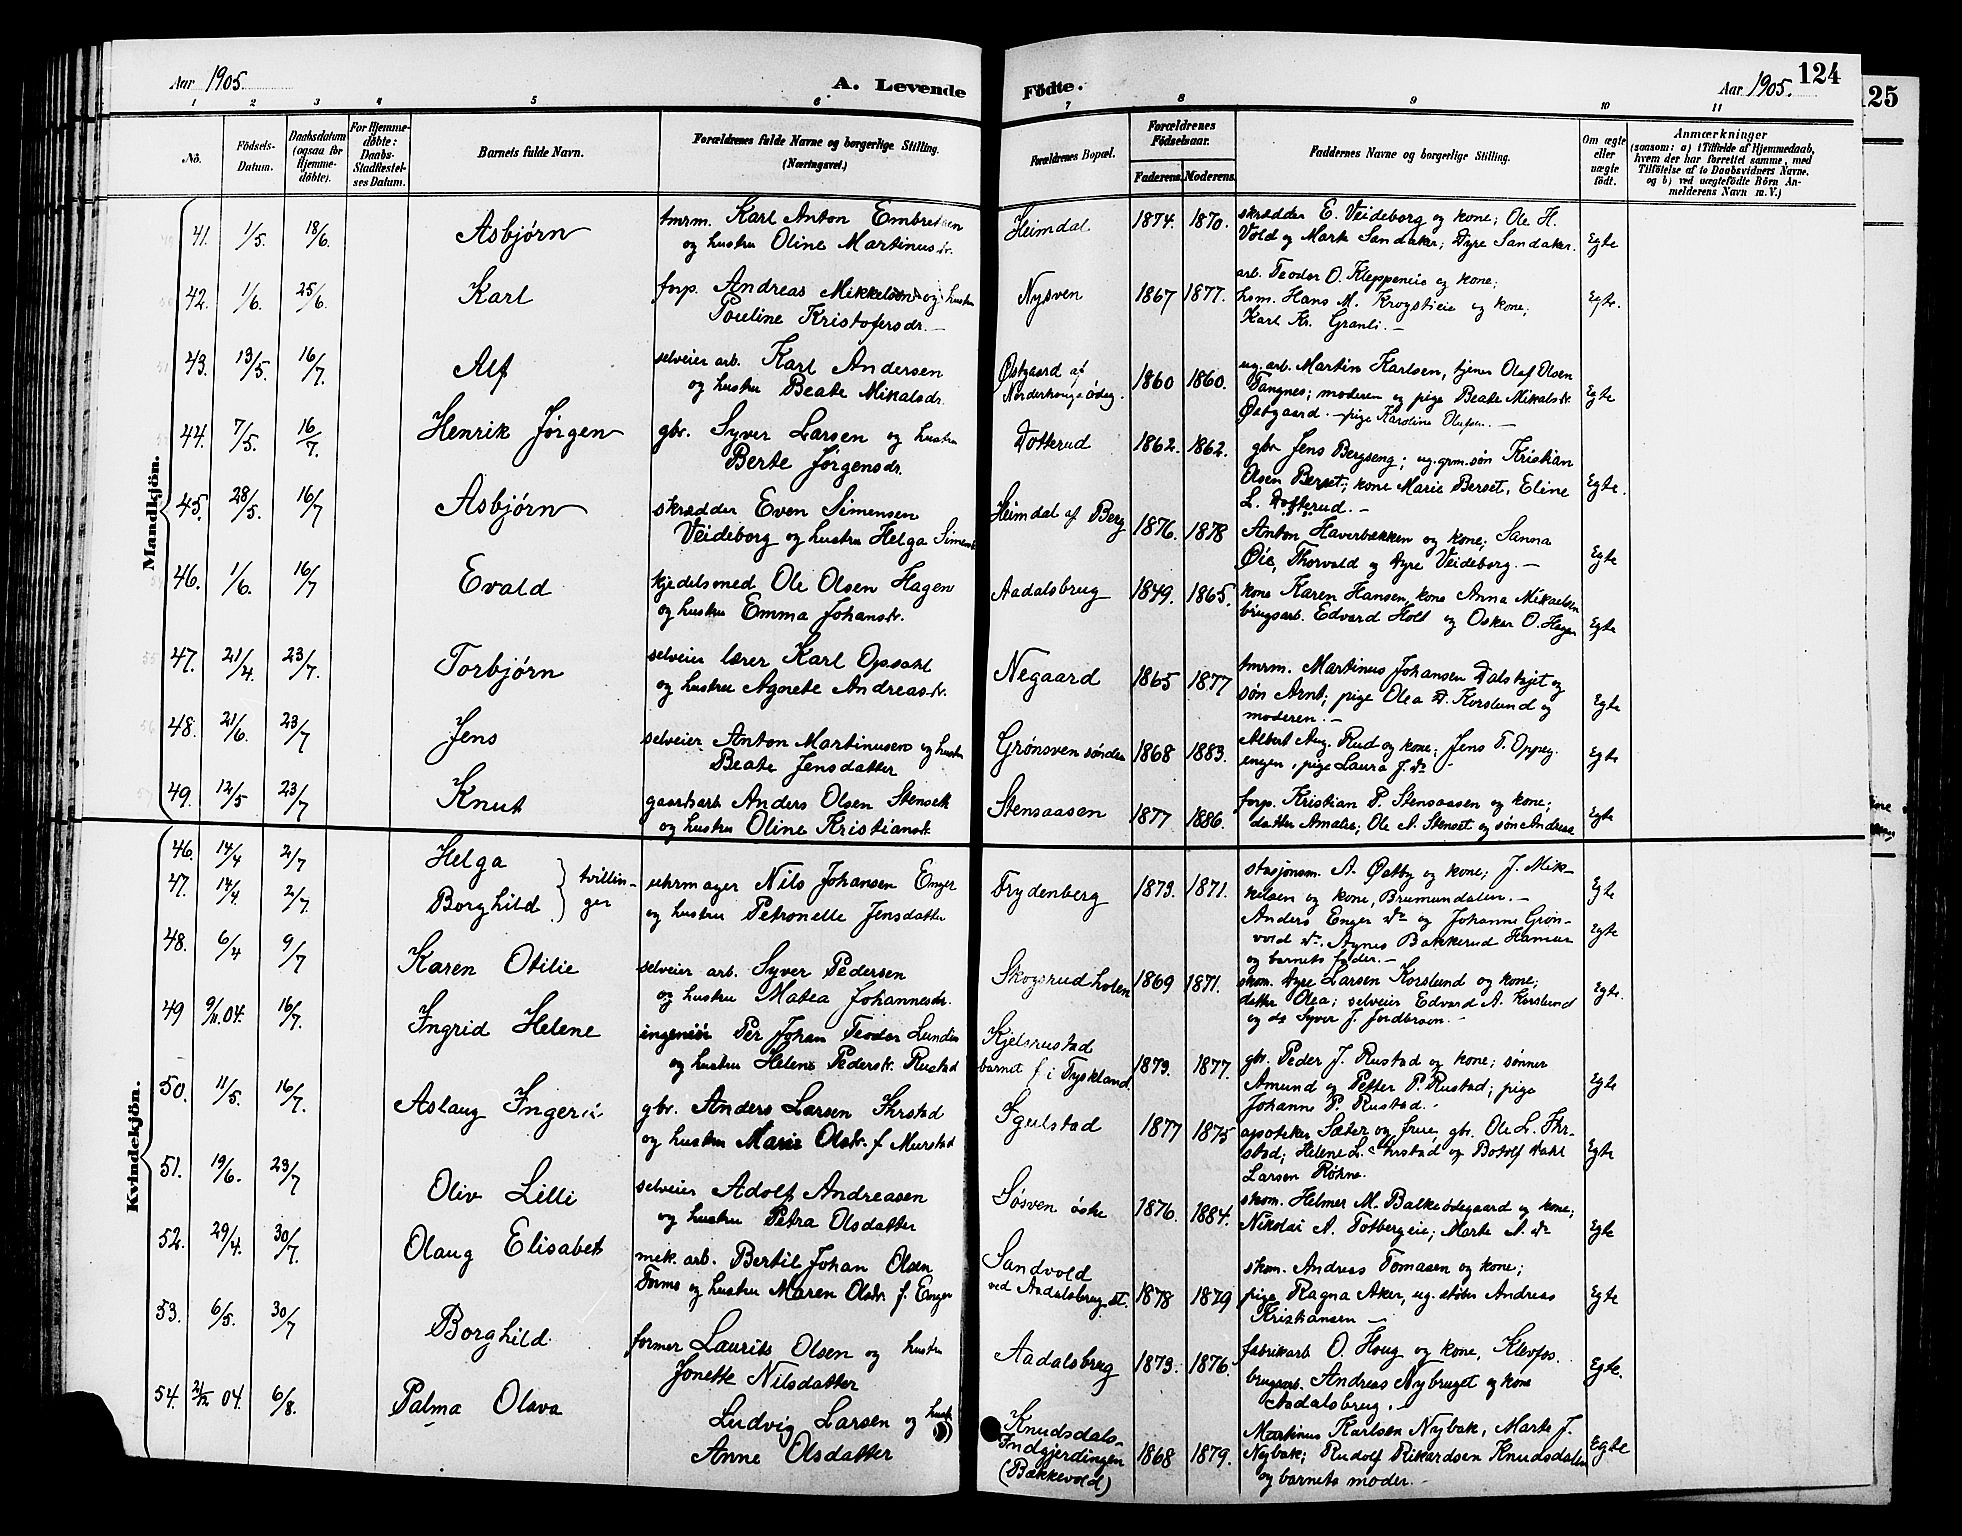 Aar 1905. A. Levende Fødte. Aar 1905. 124
125
1 2 3 4 5 6 7 8 9 10 11
No. Fødsels-Datum. Daabsdatum (ogsaa for Hjemmedøbte). For Hjemmedøbte: Daabs-Stadfæstelses Datum. Barnets fulde Navn. Forældrenes fulde Navne og borgerlige Stilling. (Næringsvei.) Forældrenes Bopæl. Forældrenes Fødselsaar. Faderens. Moderens. Faddernes Navne og borgerlige Stilling. Om ægte eller uægte født. Anmærkninger (saasom: a) i Tilfælde af Hjemmedaab, hvem der har forrettet samme, med Tilføielse af to Daabsvidners Navne, og b) ved uægtefødte Børn Anmelderens Navn m. V.)
Mandkjøn.
41. 1/5. 18/6. Asbjørn tmrm. Karl Anton Embretsen Heimdal 1874. 1870. skrædder E. Veideborg og kone; Ole H.
og hustru Oline Martinusdr. Vold og Mark Sandaker; Dyre Sandaker. Egte
42. 1/6. 25/6. Karl forp. Andreas Mikkelsen og hustru Nysven 1867 1877. arb. Teodor O. Kleppeneie og kone;
Pauline Kristofersdr. – hsm. Hans M. Krogstieie og kone; Egte.
Karl Kr. Granli. –
43. 13/5. 16/7. Alf selveier arb. Karl Andersen Østgaard af 1860 1860. ug. arb. Martin Karlsen, tjener Olaf Olsen
og hustru Beate Mikalsdr. Norderhougsødeg. Tangnes; moderen og pige Beate Mikalsdr. Egte
Østgaard. – pige Karoline Olufsen. –
44. 7/5. 16/7. Henrik Jørgen gbr. Syver Larsen og hustru Dotterud 1862. 1862. gbr. Jens Bergseng; ug. grm. søn Kristian
Berte Jørgensdr. Olsen Berset; kone Marie Berset, Eline Egte.
L. Dotterud. –
45. 28/5. 16/7 Asbjørn skrædder Even Simensen Heimdal af Berg 1876. 1878 Anton Haverbækken og kone; Sanna
Veideborg og hustru Helga Simensdr. Øie, Thorvald og Dyre Veideborg. – Egte
46. 1/6. 16/7 Evald kjedelsmed Ole Olsen Hagen Aadalsbrug 1849. 1865. kone Karen Hansen, kone Anna Mikaelsen
og hustru Emma Johansdr. brugsarb. Edvard Holt og Oskar O. Hagen Egte
47. 21/4. 23/7. Torbjørn selveier lærer Karl Opsahl Negaard 1865 1877 tmrm. Martinus Johansen Dalshjet og
og hustru Agnete Andreasdr. søn Arnt; pige Olea D. Korslund og Egte
moderen. –
48. 21/6. 23/7 Jens selveier Anton Martinusen og hustru Grønsven søndre 1868 1883. Albert Aug. Rud og kone; Jens T. Oppeg-
Beate Jensdatter engen, pige Laura J. Do – Egte
49. 12/5 23/7 Knut gaardsarb Anders Olsen Stenseth Stensaasen 1877 1886. forp. Kristian P. Stensaasen og kone;
og hustru Oline Kristiansdr. datter Amalie; Ole A. Stenset og søn Andreas Egte
Kvindekjøn.
46. 14/4 2/7 Helga } tvillin- uhrmager Nils Johansen Enger Frydenberg 1873. 1871. stasjonsm. A. Østby og kone; J. Mik-
47. 14/4 2/7. Borghild } ger og hustru Petronelle Jensdatter kelsen og kone, Brumundalen. – Egte
Anders Enger Do og Johanne Grøn-
vold Do. Agnes Bakkerud Hamar Egte
og barnets fader. –
48. 6/4 9/7 Karen Otilie selveier arb. Syver Pedersen Skogsrudholen 1869 1871. skom. Dyre Larsen Korslund og kone;
og hustru Matea Johannesdr. datter Olea; selveier Edvard A. Korslund Egte.
og ds Syver J. Jordbrson. –
49 9/11. 04. 16/7. Ingrid Helene ingeniør Per Johan Teodor Lundin Kjelsrustad 1873. 1877. gbr. Peder J. Rustad og kone; sønner
og hustru Helene Pedersdr. Rustad barnet f. i Tyskland Amund og Petter P. Rustad; pige Egte
Johanne P. Rustad. –
50. 11/5. 16/7. Aslaug Ingeri gbr. Anders Larsen Ihrstad Igelstad 1877 1875 apoteker Sæter og frue, gbr. Ole L. Ihr-
og hustru Marie Olsdr. f. Murstad stad; Helene L. Ihrstad og Botolf Dahl Egte
Larsen Røhne.
51. 19/6. 23/7 Oliv Lilli selveier Adolf Andreasen Søsven østre 1876. 1884. skom. Helmer M. Balkeødegaard og kone;
og hustru Petra Olsdatter Nikolai A. Totbergeie; Marte A. Do Egte
52. 29/4. 30/7. Olaug Elisabet mek. arb. Bertil Johan Olsen Sandvold 1878 1879 skom. Andreas Tomasen og kone;
og hustru Maren Olsdr. f. Enger ved Aadalsbrug st. pige Ragna Aker, ug. støber Andreas Egte
Kristiansen –
53. 6/5. 30/7 Borghild former Laurits Olsen og hustru Aadalsbrug 1873. 1876. fabrikarb O. Houg og kone, Klevfos.
Jonette Nilsdatter brugsarb. Andreas Nybruget og kone Egte.
Aadalsbrug. –
54. 21/12 04. 6/8. Palma Olava Ludvig Larsen og hustru Knudsdals- 1868 1879. Martinus Karlsen Nybak, Marte J.
Anne Olsdatter Indgjerdingen Nybak; Rudolf Rikardsen Knudsdalen Egte
(Bækkevold) og barnets moder. –